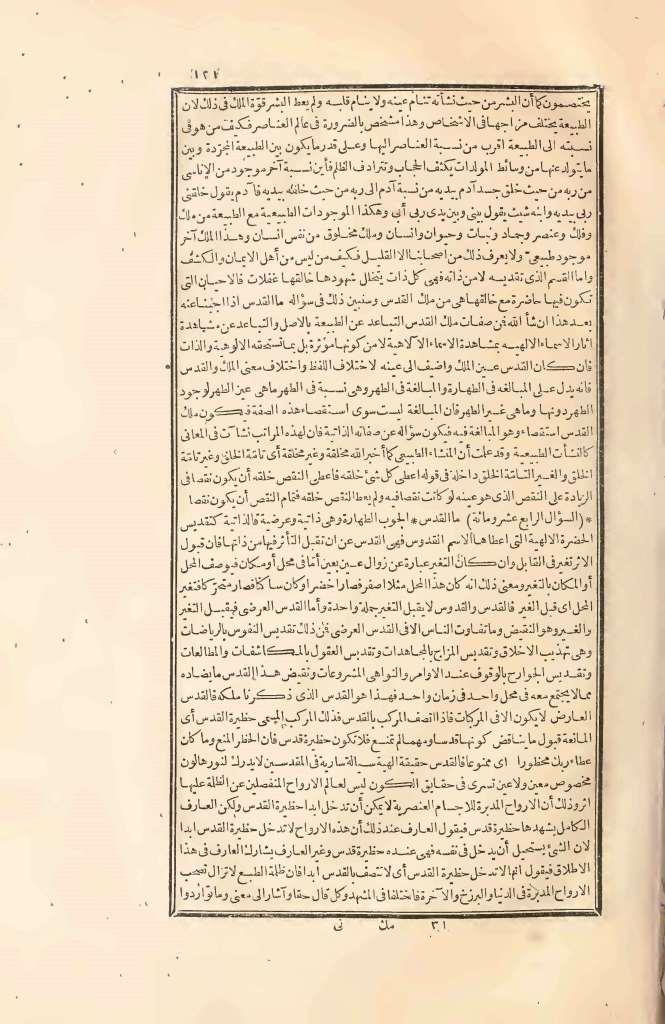 ١٢١
يختصمون كما أن البشر من حيث نشأته تنام عينه ولا ينام قلبه ولم يعط البشر قوّة الملك فى ذلك لان
الطبيعة يختلف مزاجها فى الاشخاص وهذا مشخص بالضرورة فى عالم العناصر فكيف من هو فى
نسبته الى الطبيعة اقرب من نسبة العناصر اليها وعلى قدر ما يكون بين الطبيعة المجرّدة وبين
ما يتولد عنها من وسائط المولدات يكثف الحجاب وتترادف الظلم فأين نسبة آخر موجود من الاناسى
من ربه من حيث خلق جسد آدم بيديه من نسبة آدم الى ربه من حيث خلقه بيديه فآدم يقول خلقنى
ربى بيديه وابنه شيث يقول بينى وبين يدى ربى أبى وهكذا الموجودات الطبيعية مع الطبيعة من ملك
وفلك وعنصر وجماد ونبات وحيوان وانسان وملك مخلوق من نفس انسان وهذا الملك آخر
موجود طبيعىّ ولا يعرف ذلك من اصحابنا الا القليل فكيف من ليس من أهل الايمان والكشف
واما القسم الذى تقديسه لا من ذاته فهى كل ذات يتخلل شهودها خالقها غفلات فالاحيان التى
تكون فيها حاضرة مع خالقها هى من ملك القدس وسنبين ذلك فى سؤاله ما القدس اذا اجبنا عنه
بعد هذا ان شا الله فن صفات ملك القدس التباعد عن الطبيعة بالاصل والتباعد عن مشاهدة
اثار الاسماء الالهيه بمشاهدة الاسماء الآلاهية لا من كونها مؤثرة بل بما تستحقه الالوهية والذات
فان كان القدس عين الملك واضيف الى عينه لاختلاف اللفظ واختلاف معنى الملك والقدس
فانه يدل على المبالغه فى الطهارة والمبالغة فى الطهر وهى نسبة فى الطهر ما هى عين الطهر لوجود
الطهر دونها وما هى غير الطهر فان المبالغة ليست سوى استقصاء هذه الصفة فيكون ملك
القدس استقصاء وهو المبالغة فيه فيكون سؤاله عن صفاته الذاتية فان لهذه المراتب نشآت فى المعانى
كالنشأت الطبيعية وقد علمت أن المنشاء الطبيعى كما أخبر الله مخلقة وغير مخلقة أى تامة الخلق وغير تامّة
الخلق والغير التامّة الخلق داخله فى قوله اعطى كل شئ خلقه فاعطى النقص خلقه أن يكون نقصا فى
الزيادة على النقص الذى هو عينه لو كانت نقصا فيه ولم يعط النقص خلقه فتمام النقص أن يكون نقصا
* (السؤال الرابع عشر ومائة) ما القدس * الجوب الطهارة وهى ذاتية وعرضية فالذاتية كتقديس
الحضرة الالهية التى اعطاها الاسم القدوس فهى القدس عن ان تقبل التأثر فيها من ذاتها فان قبول
الاثر تغير فى القابل وان كان التغير عبارة عن زوال عين بعين امّا فى محل أو مكان فيوصف المحل
أو المكان بالتغير ومعنى ذلك انه كان هذا المحل مثلا اصفر فصار اخضر او كان ساكنا فصار متحرّكا فتغير
المحل اى قبل الغير فالقدس والقدوس لا يقبل التغير جملة واحدة وأما القدس العرضى فيقبل التغير
والغير وهو النقيض وما تفاوت الناس الا فى القدس العرضى فن ذلك تقديس النفوس بالرياضات
وهى تهذيب الاخلاق وتقديس المزاج بالمجاهدات وتقديس العقول بالمكاشفات والمطالعات
وتقديس الجوارح بالوقوف عند الاوامر والنواهى المشروعات ونقيض هذا القدس ما يضاده
مما لا يجتمع معه فى محل واحد فى زمان واحد فهذا هو القدس الذى ذكرنا ملكه فالقدس
العارض لا يكون الا فى المركبات فاذا اتصف المركب بالقدس فذلك المركب المسمى حظيرة القدس أى
المانعة قبول ما يناقض كونها قدسا ومهما لم تمنع فلا تكون حظيرة قدس فان الحظر المنع وما كان
عطاء ربك محظورا اى ممنوعا فالقدس حقيقة الهية سيالة سارية فى المقدسين لا يدرك لنورها لون
مخصوص معين ولا عين تسرى فى حقايق الكون ليس لعالم الارواح المنفصلين عن الظلة عليها
اثر وذلك أن الارواح المدبرة للاجسام العنصرية لا يمكن أن تدخل ابدا حظيرة القدس ولكن العارف
الكامل يشهدها حظيرة قدس فيقول العارف عند ذلك أن هذه الارواح لا تدخل حظيرة القدس ابدا
لان الشئ يستحيل أن يدخل فى نفسه فهى عنده حظيرة قدس وغير العارف يشارك العارف فى هذا
الاطلاق فيقول انها لا تدخل حظيرة القدس أى لا تتصف بالقدس ابدا فان ظلة الطبع لا تزال تصحب
الارواح المدبرة فى الدنيا والبرزخ والآخرة فاختلفا فى المشهد وكل قال حقا وآشار الى معنى وما تواردوا
٣١ مك نى